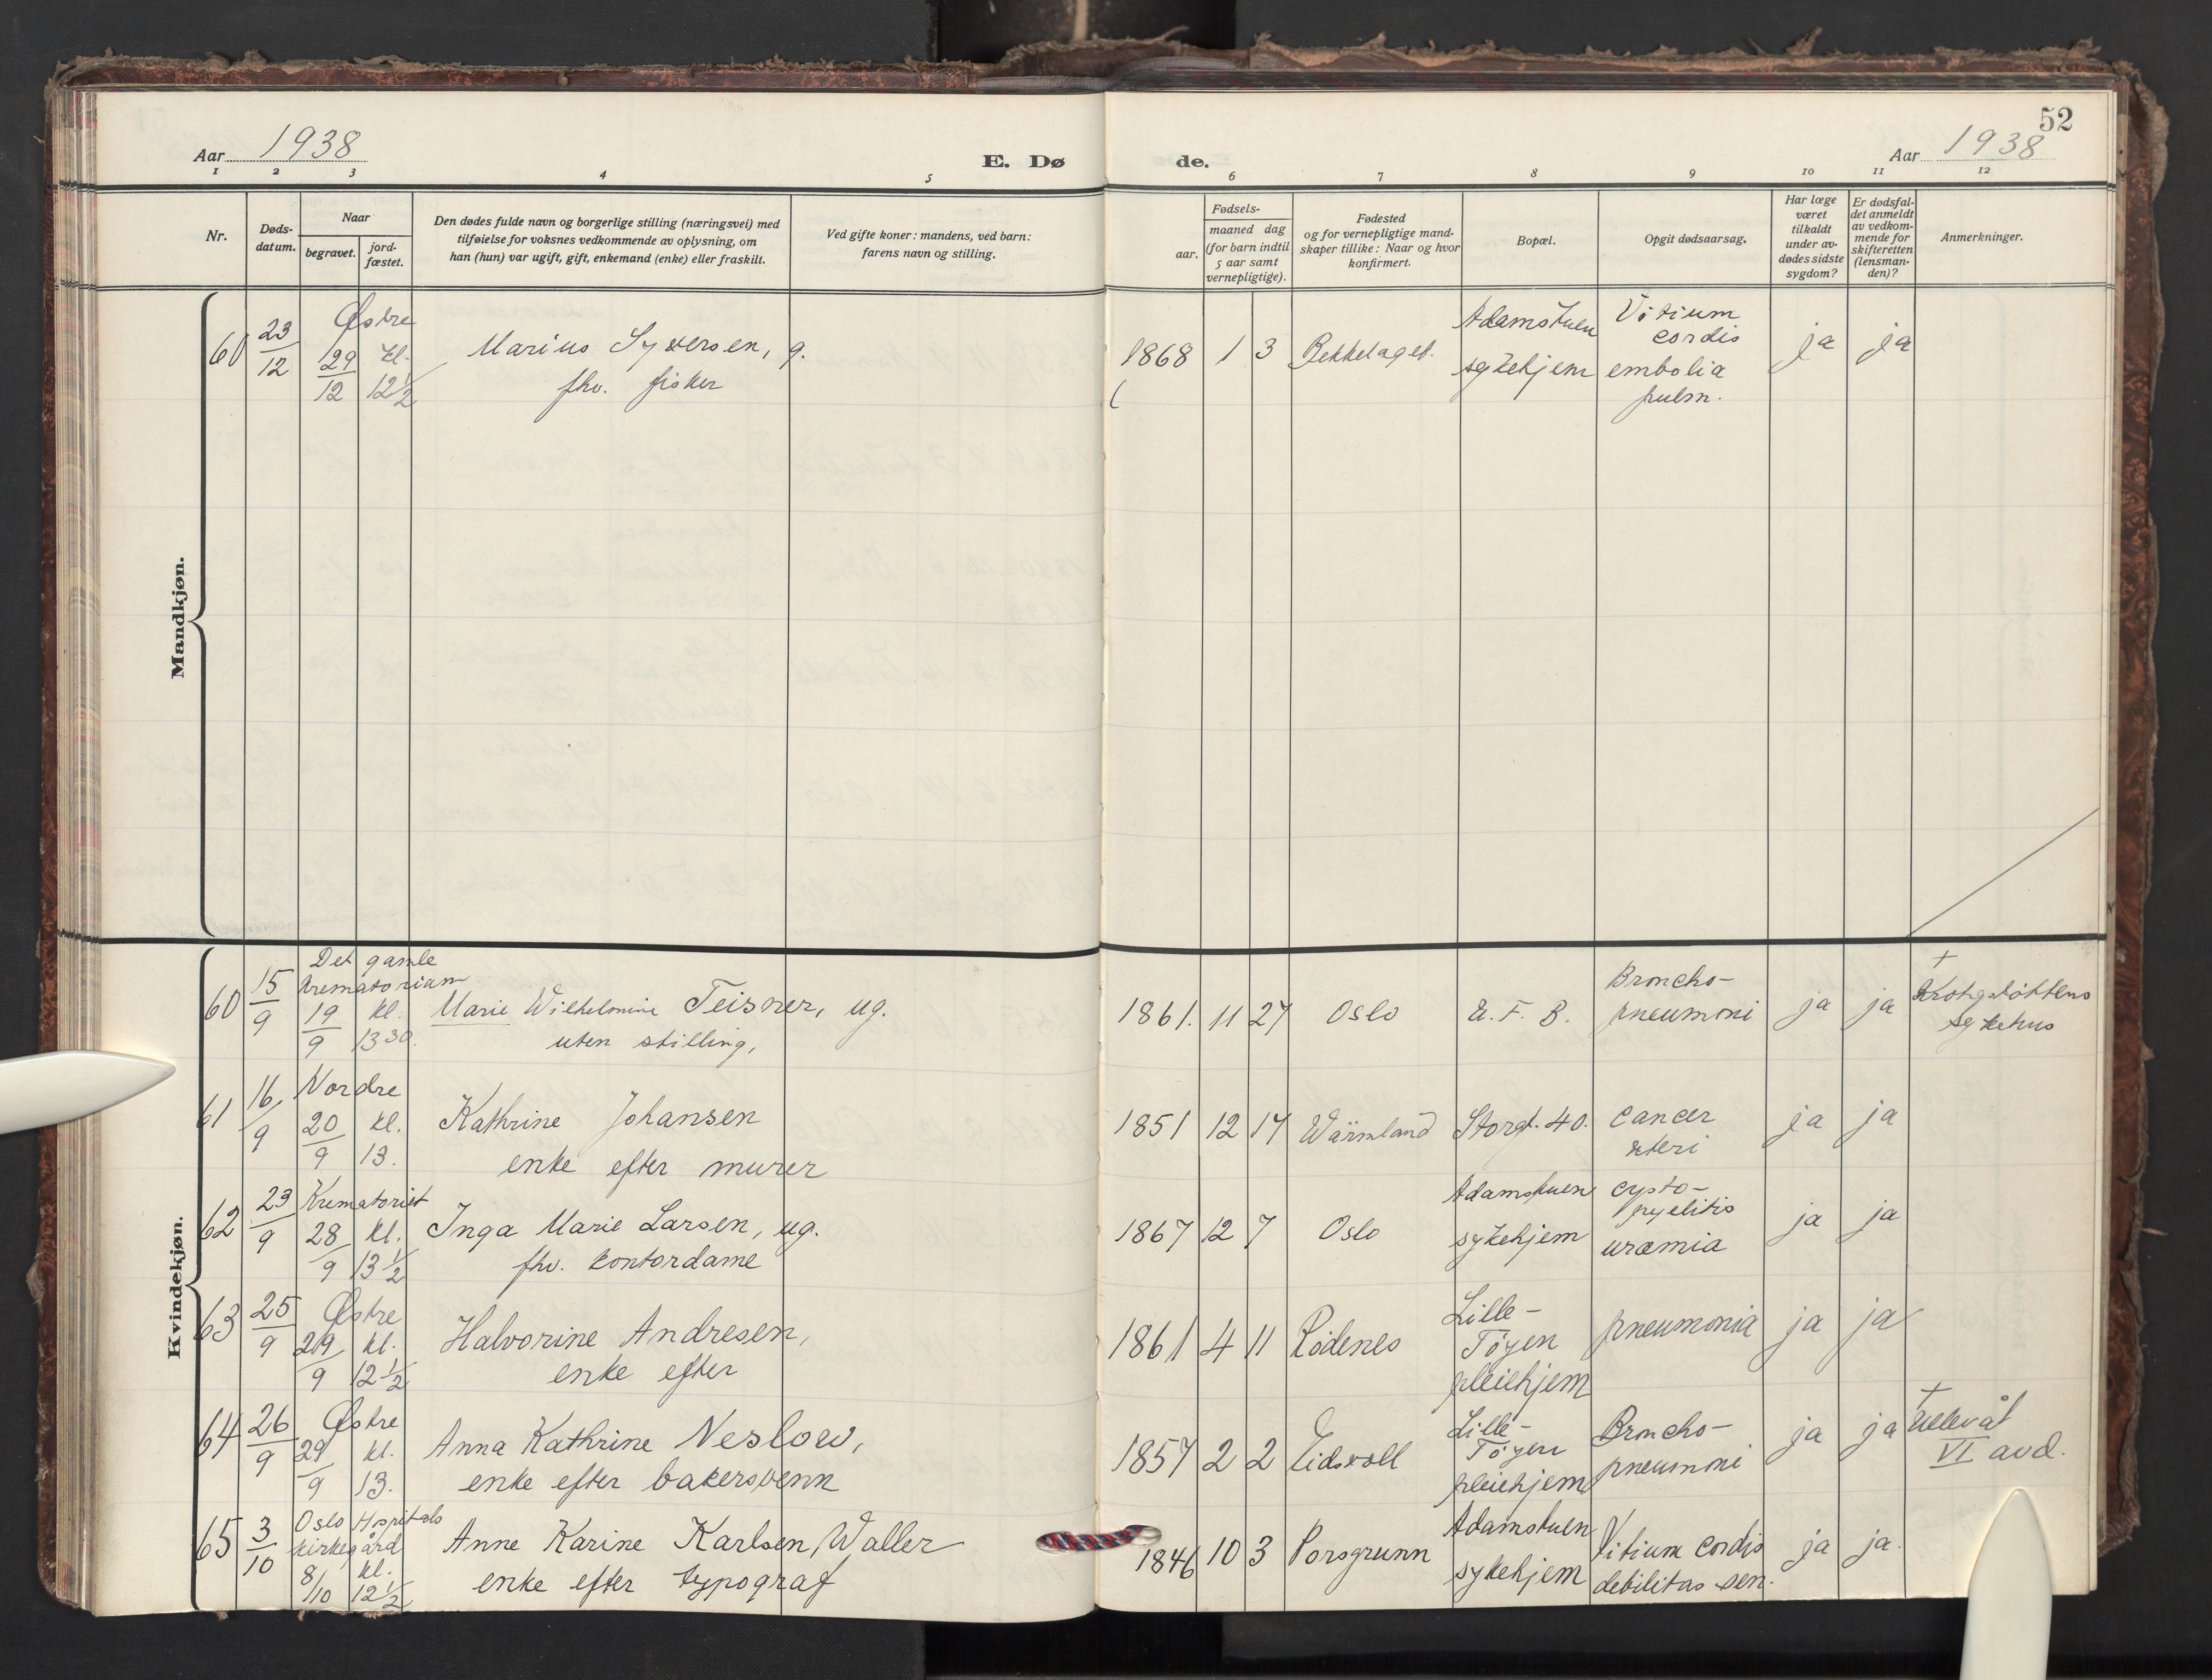 Aar 1938
E. Dø
1 2 3 4 5
Nr.
Døds-
datum.
Naar
begravet.
jord-
fæstet.
Den dødes fulde navn og borgerlige stilling (næringsvei) med
tilføielse for voksnes vedkommende av oplysning, om
han (hun) var ugift, gift, enkemand (enke) eller fraskilt.
Ved gifte koner: mandens, ved barn:
farens navn og stilling.
Mandkjøn.
60 23/12
Østre
29/12 kl. 12½
Marius Syversen, g.
fhv. fisker
Kvindekjøn.
60 15/9
Det gamle
krematorium
19/9 kl. 13 30.
Marie Wilhelmine Teisner, ug.
uten stilling,
61 16/9
Nordre
20/9 kl. 13.
Kathrine Johansen
enke efter murer
62 23/9
Krematoriet
28/9 kl. 13½
Inga Marie Larsen, ug.
fhv. kontordame
63 25/9
Østre
29/9 kl. 12½
Halvorine Andresen,
enke efter
64 26/9
Østre
29/9 kl. 13.
Anna Kathrine Neslow,
enke efter bakersvenn
65 3/10
Oslo Hospitals
kirkegård
8/10 kl. 12½
Anne Karine Karlsen, Waller
enke efter typograf
52
de.
Aar 1938
6 7 8 9 10 11 12
aar.
Fødsels-
maaned dag
(for barn indtil
5 aar samt
vernepligtige).
Fødested
og for vernepligtige mand-
skaper tillike: Naar og hvor
konfirmert.
Bopæl.
Opgit dødsaarsag.
Har læge
været
tilkaldt
under av-
dødes sidste
sygdom?
Er dødsfal-
det anmeldt
av vedkom-
mende for
skifteretten
(lensman-
den)?
Anmerkninger.
1868 1 3 Bekkelaget.
Adamstuen
sykehjem
Vitium
cordis
embolia
pulm.
ja ja
1861. 11 27 Oslo
E. F. B.
Broncho-
pneumoni
ja ja
+
Krohgstøttens
sykehus
1851 12 17 Wärmland
Storgt. 40.
cancer
uteri
ja ja
1867 12 7 Oslo
Adamstuen
sykehjem
cysto-
pyelitis
uræmia
ja ja
1861 4 11 Rødenes
Lille-
Tøyen
pleiehjem
pneumonia
ja ja
1857 2 2 Eidsvoll
Lille-
Tøyen
pleiehjem
Broncho-
pneumoni
ja ja
+
Ullevål
VI avd.
1846 10 3 Porsgrunn
Adamstuen
sykehjem
Vitium cordis
debilitas sen.
ja ja.